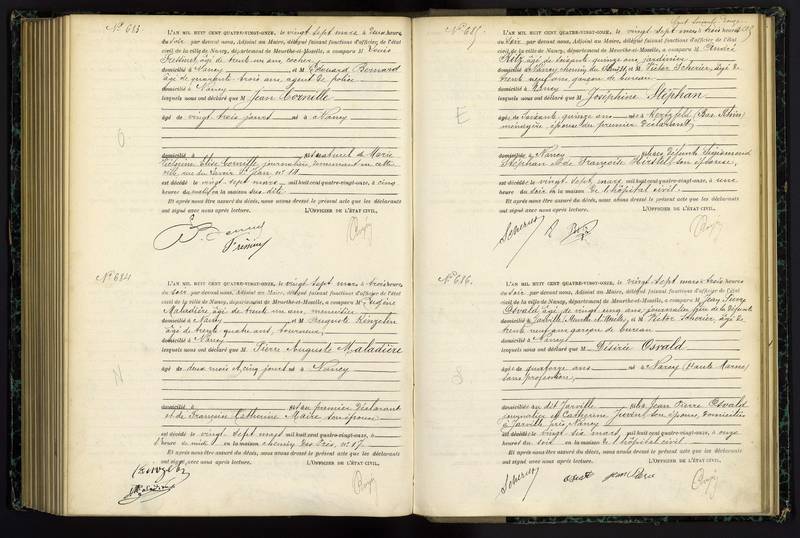 N° 613
L'AN MIL HUIT CENT QUATRE-VINGT-ONZE, le vingt sept mars à deux heures
du soir par devant nous, Adjoint au Maire, délégué faisant fonctions d'officier de l'état
civil de la ville de Nancy, département de Meurthe-et-Moselle, a comparu M Louis
âgé de trente un ans, cocher
domicilié à Nancy et M Edouard Bernard
âgé de quarante trois ans, agent de police
domicilié à Nancy
lesquels nous ont déclaré que M Jean Cornille
âgé de vingt trois jours né à Nancy
O
domicilié à fils naturel de Marie
Elise Cornille, journalière, demeurant en cette
ville, rue du St Jean n° 14
est décédé le vingt sept mars mil huit cent quatre-vingt-onze, à cinq
heures du matin en la maison sus dite
Et après nous être assuré du décès, nous avons dressé le présent acte que les déclarants
ont signé avec nous après lecture. L'OFFICIER DE L'ÉTAT CIVIL,
N° 684
L'AN MIL HUIT CENT QUATRE-VINGT-ONZE, le vingt sept mars à trois heures
du soir par devant nous, Adjoint au Maire, délégué faisant fonctions d'officier de l'état
civil de la ville de Nancy, département de Meurthe-et-Moselle, a comparu M Eugène
Maladière âgé de trente un ans, menuisier
domicilié à Nancy et M Auguste Kinzelin
âgé de trente quatre ans, tourneur
domicilié à Nancy
lesquels nous ont déclaré que M Pierre Auguste Maladière
âgé de deux mois cinq jours né à Nancy
N
domicilié à fils du premier déclarant
et de Françoise Catherine Maire son épouse
est décédé le vingt sept mars mil huit cent quatre-vingt-onze, à
heure de midi en la maison chemin des Prés, n° 17
Et après nous être assuré du décès, nous avons dressé le présent acte que les déclarants
ont signé avec nous après lecture. L'OFFICIER DE L'ÉTAT CIVIL,
N° 685
L'AN MIL HUIT CENT QUATRE-VINGT-ONZE, le vingt sept mars à trois heures
du soir par devant nous, Adjoint au Maire, délégué faisant fonctions d'officier de l'état
civil de la ville de Nancy, département de Meurthe-et-Moselle, a comparu M André
âgé de soixante quinze ans jardinier
domicilié à Nancy chemin du et M Victor Scherier, âgé de
trente neuf ans garçon de bureau
domicilié à Nancy
lesquels nous ont déclaré que M Joséphine Stéphan
âgée de soixante quinze ans née à Hertzfeld (Bas Rhin)
ménagère épouse du premier déclarant
E
domiciliée à Nancy fille des défunts Sigismond
Stéphan et de Françoise Kirstell son épouse,
est décédée le vingt sept mars mil huit cent quatre-vingt-onze, à une
heure du soir en la maison de l'hôpital civil.
Et après nous être assuré du décès, nous avons dressé le présent acte que les déclarants
ont signé avec nous après lecture. L'OFFICIER DE L'ÉTAT CIVIL,
Scherier
N° 686.
L'AN MIL HUIT CENT QUATRE-VINGT-ONZE, le vingt sept mars à trois heures
du soir par devant nous, Adjoint au Maire, délégué faisant fonctions d'officier de l'état
civil de la ville de Nancy, département de Meurthe-et-Moselle, a comparu M Jean Pierre
Osvald âgé de vingt cinq ans, journalier frère de la défunte
domicilié à Jarville, Meurthe et Moselle, et M Victor Scherier, âgé de
trente neuf ans garçon de bureau
domicilié à Nancy
lesquels nous ont déclaré que M Désirée Osvald
âgée de quatorze ans née à Narcy (Haute Marne)
sans profession,
S
domiciliée au dit Jarville fille Jean Pierre Osvald
journalier et Catherine son épouse, domiciliés
à Jarville près Nancy
est décédée le vingt six mars mil huit cent quatre-vingt-onze, à onze
heures du soir en la maison de l'hôpital civil
Et après nous être assuré du décès, nous avons dressé le présent acte que les déclarants
ont signé avec nous après lecture. L'OFFICIER DE L'ÉTAT CIVIL,
Scherier